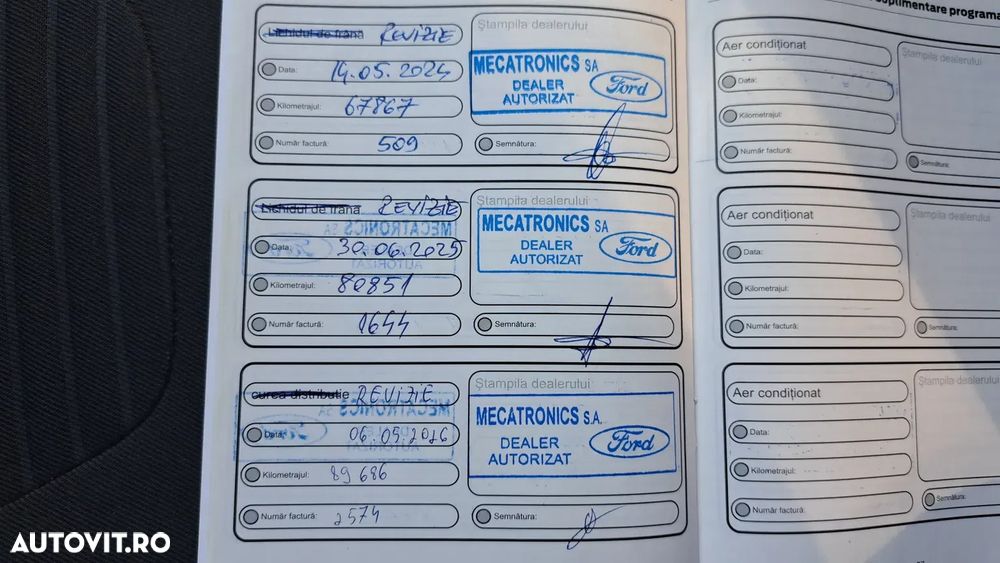 suplimentare programa
Lichidul de frână REVIZIE
Data: 14.05.2024
Kilometrajul: 67867
Număr factură: 509
Ştampila dealerului
MECATRONICS SA
DEALER
AUTORIZAT
Ford
Semnătura:
Lichidul de frână REVIZIE
Data: 30.06.2025
Kilometrajul: 80851
Număr factură: 1644
Ştampila dealerului
MECATRONICS SA
DEALER
AUTORIZAT
Ford
Semnătura:
curea distributie REVIZIE
Data: 06.05.2026
Kilometrajul: 89686
Număr factură: 2574
Ştampila dealerului
MECATRONICS S.A.
DEALER
AUTORIZAT
Ford
Semnătura:
Aer condiționat
Data:
Kilometrajul:
Număr factură:
Ştampila dealerului
Semnătura:
Aer condiționat
Data:
Kilometrajul:
Număr factură:
Ştampila dealerului
Semnătura:
Aer condiționat
Data:
Kilometrajul:
Număr factură:
Ştampila dealerului
Semnătura:
AUTOVIT.RO